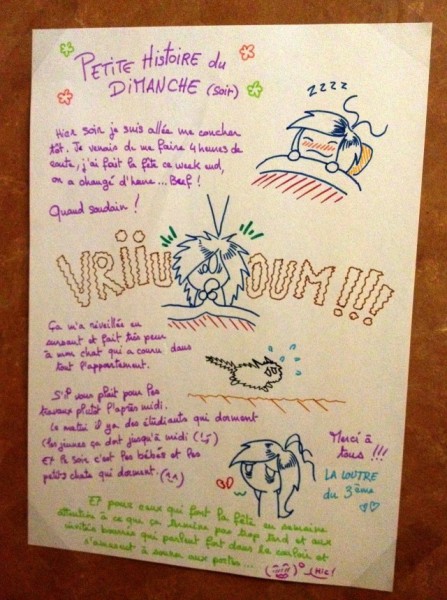 Petite Histoire du
DIMANCHE (soir)
zzzz
Hier soir je suis allée me coucher
tôt. Je venais de me faire 4 heures de
route, j'ai fait la fête ce week end,
on a changé d'heure... Bref !
Quand soudain !
VRiiiuuuOUM!!!
Ça m'a réveillée en
sursaut et fait très peur
à mon chat qui a couru dans
tout l'appartement.
S'il vous plaît pour les
travaux plutôt l'après midi.
Le matin il y a des étudiants qui dorment
(les jeunes ça dort jusqu'à midi
Et le soir c'est les bébés et les
petits chats qui dorment. (^^)
Merci à
tous !!!
LA LOUTRE
du 3ème
Et pour ceux qui font la fête en semaine
attention à ce que ça termine pas trop tard et aux
invités bourrés qui parlent fort dans le couloir et
s'amusent à sonner aux portes...
HIC!